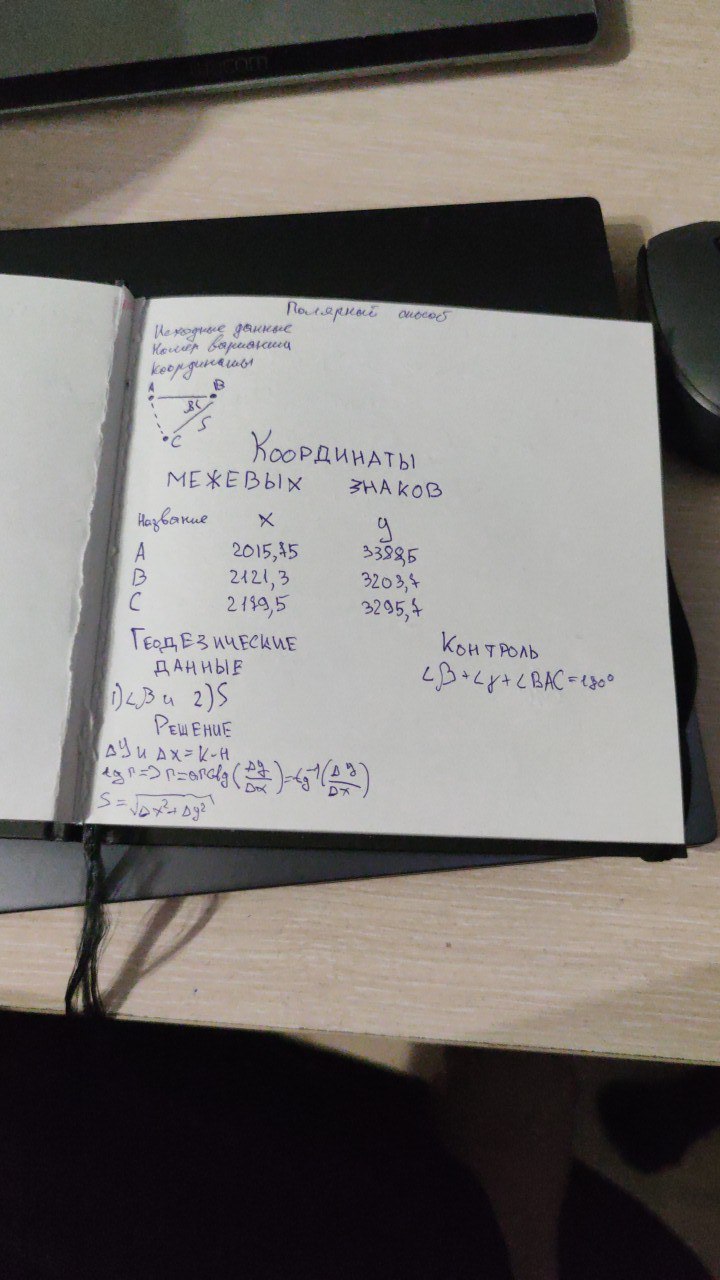 Полярный способ
Исходные данные
Номер варианта
Координаты
A B
S
C
КООРДИНАТЫ
МЕЖЕВЫХ ЗНАКОВ
Название X y
A 2015,75
B 2121,3 3203,7
C 2179,5 3295,7
ГЕОДЕЗИЧЕСКИЕ
ДАННЫЕ
КОНТРОЛЬ
1)∠β и 2)S
∠β+∠γ+∠BAC=180°
РЕШЕНИЕ
ΔУ и ΔX=К-Н
tg r=> r=arctg(Δy/Δx)=tg⁻¹(Δy/Δx)
S=√Δx²+Δy²